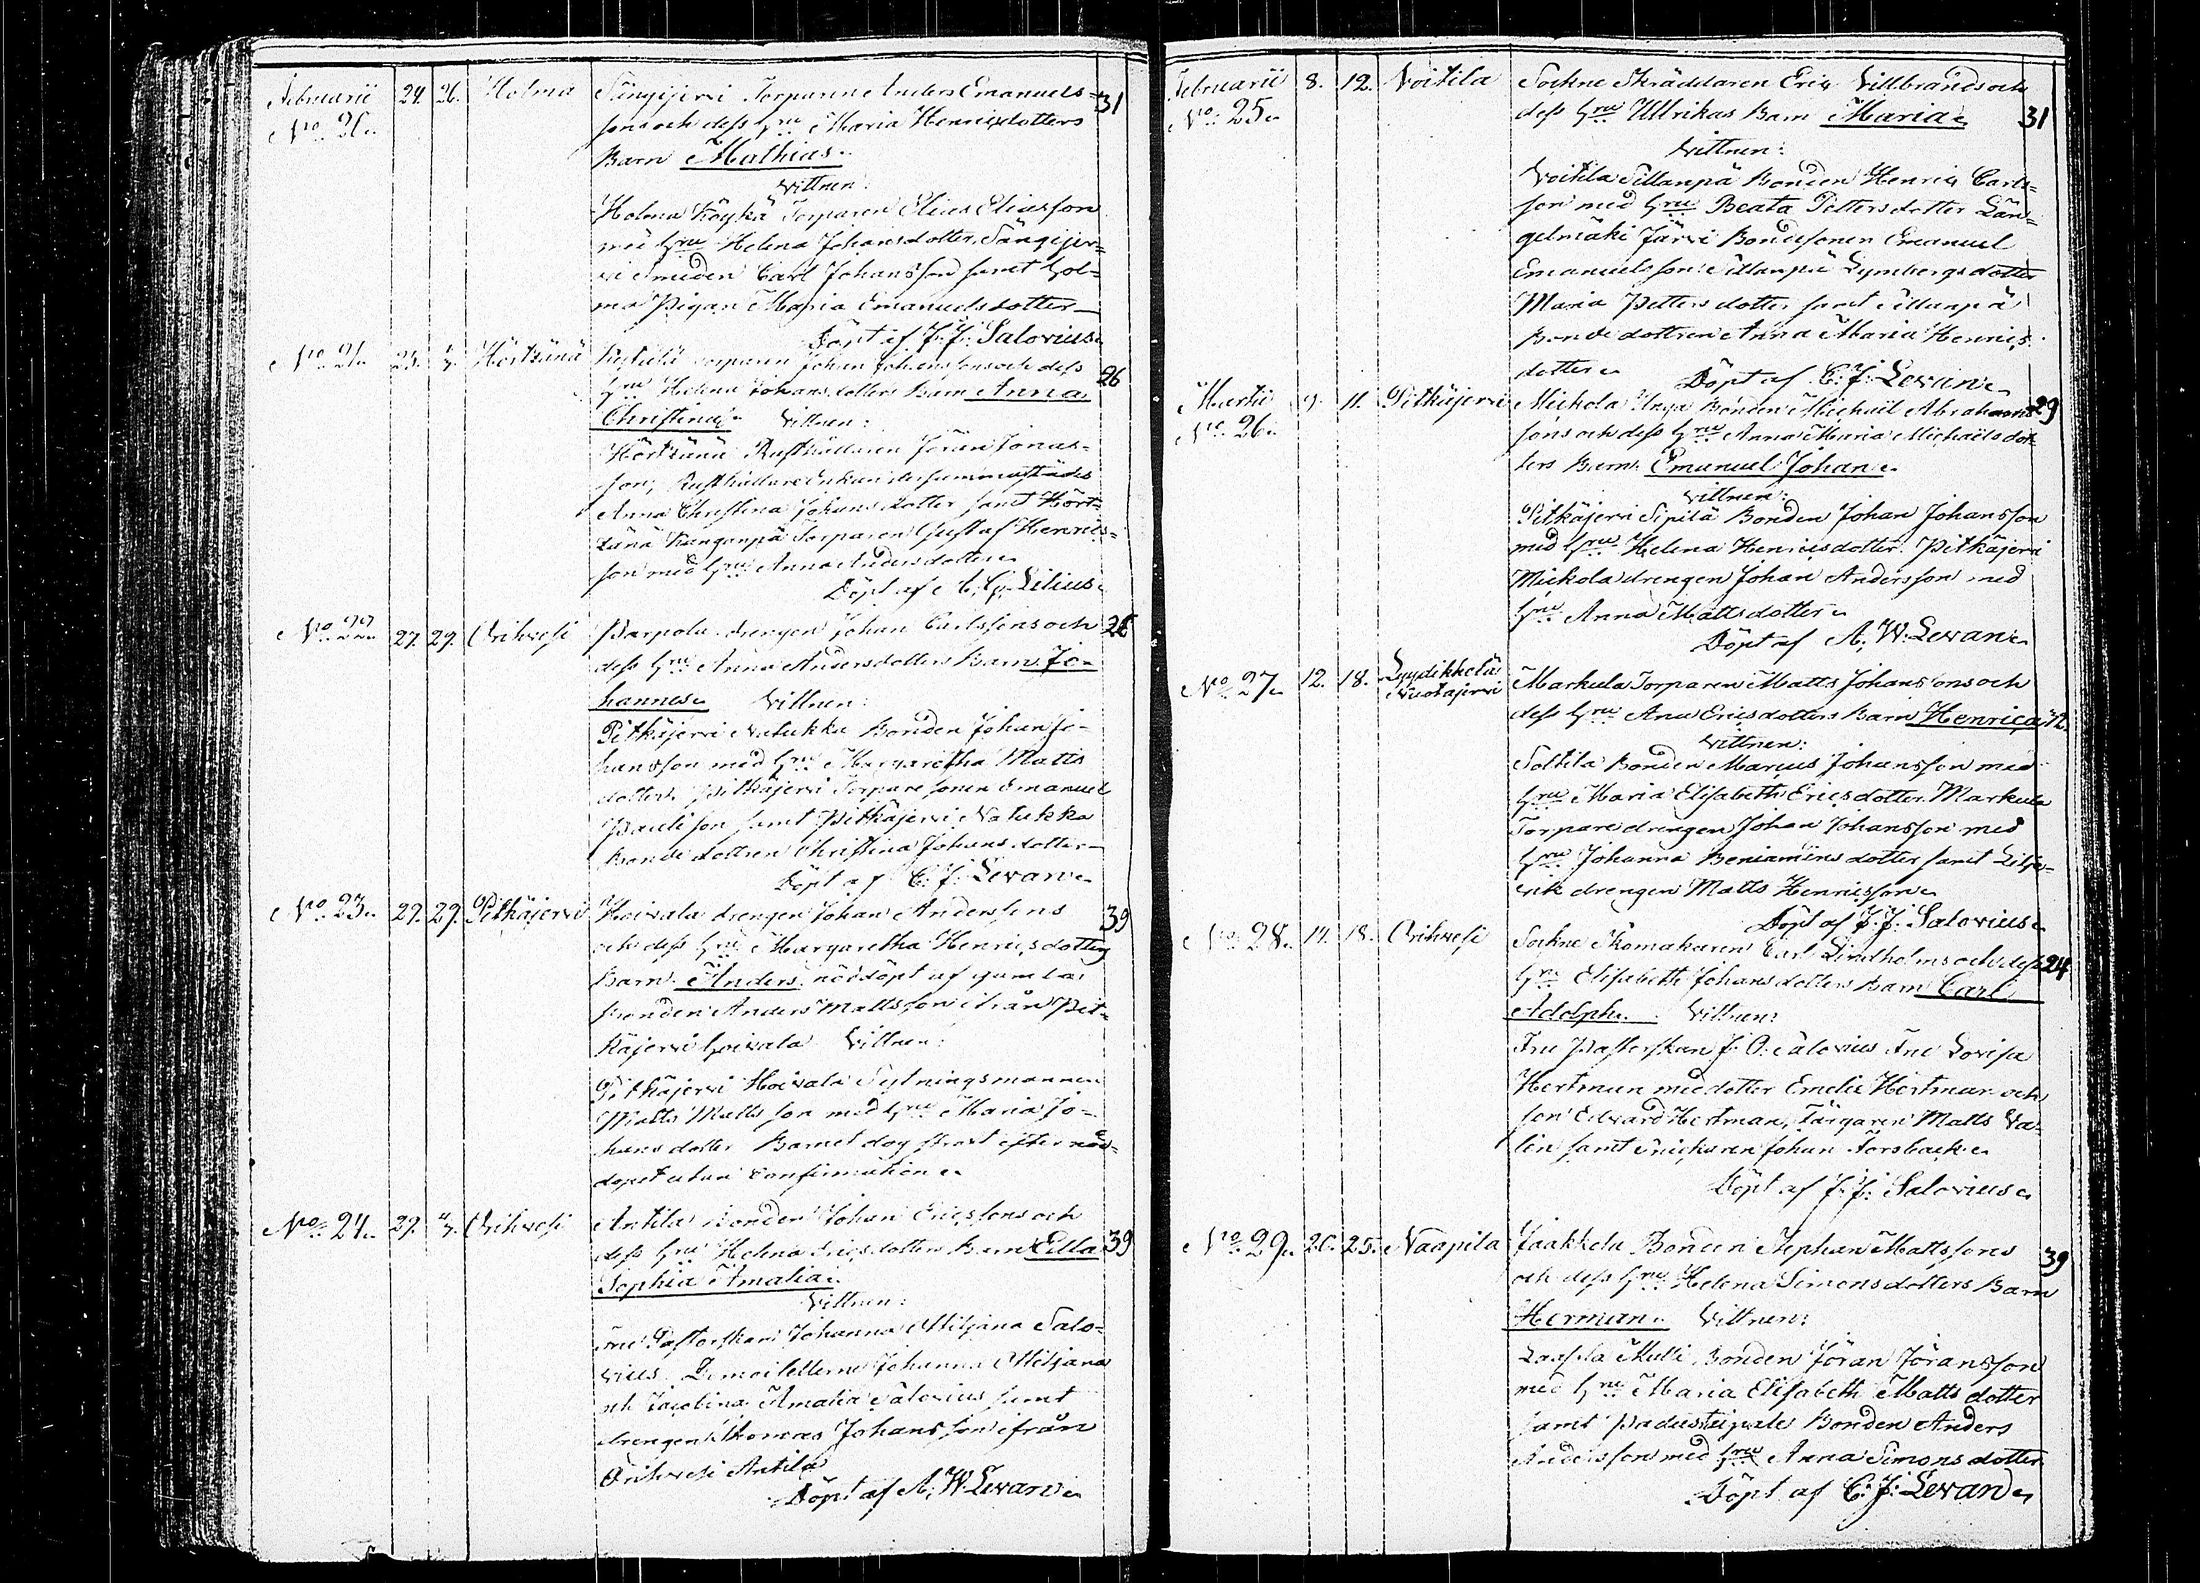 Februarii 24. 26. Holma Sängijervi Torparen Anders Emanuels= 31
No. 20. sons och dess hru Maria Henricsdotters
Barn Mathias.
Vittnen:
Holma Köykä Torparen Elias Eliasson
med hru Helena Johansdotter, Sängijer=
vi Smeden Carl Johansson samt Hol=
ma Pigan Maria Emanuelsdotter
Döpt af J. J. Salovius.
No. 21. 25. Hörtsänä Torparen Johan Johanssons och dess 26
hru Helena Johansdotters Barn Anna
Christina. Vittnen:
Hörtsänä Rusthållaren Jöran Jonas=
son, Rusthållare Enkan dersammastädes
Anna Christina Johansdotter samt Hört=
sänä Kanganpä Torparen Gustaf Henrics=
son med hru Anna Andersdotter.
Döpt af Lilius.
No. 22. 27. 29. Orihvesi Parpola drengen Johan Carlssons och 26
dess hru Anna Andersdotters Barn Jo=
hannes. Vittnen:
Pitkäjervi Natukka Bonden Johan Jo=
hansson med hru Margaretha Matts
dotter, Pitkäjervi Torpare sonen Emanuel
Paulisson samt Pitkäjervi Natukka
Bonde dottren Christina Johansdotter
Döpt af C. J. Levan.
No. 23. 29. 29. Pitkäjervi Hoivala drengen Johan Anderssons 39
och dess hru Margaretha Henricsdotters
Barn Anders, nöddöpt af gamla
bonden Anders Mattsson ifrån Pit=
käjervi Hoivala Vittnen:
Pitkäjervi Hoivala Sextningsmannen
Matts Mattsson med hru Maria Jo=
hansdotter Barnet dog strax efter nöd=
dopet utan Confirmation.
No. 24. 29. Orihvesi Antila Bonden Johan Ericssons och
dess hru Helena Ericsdotters Barn Ulla 39
Sophia Amalia.
Vittnen:
Fru Pastorskan Johanna Miljana Salo=
vius, Demoisellerne Johanna Miljana
och Carolina Amalia Salovius samt
drengen Thomas Johansson ifrån
Orihvesi Antila
Döpt af A. W. Levan.
Februarii 8. 12. Voitila Sockne Skräddaren Eric Villbrands och
No. 25. dess hru Ullrikas Barn Maria. 31
Vittnen:
Voitila Sillanpä Bonden Henric Carls=
son med hru Beata Pettersdotter Län=
gelmäki Järvi Bondesonen Emanuel
Emanuelsson, Sillanpä dotter
Maria Pettersdotter samt Sillanpä
Bonde dottren Anna Maria Henrics
dotter. Döpt af C. J. Levan.
Martii 9. 11. Pitkäjervi Mickola Unga Bonden Michaël Abrahams 29
No. 26. sons och dess hru Anna Maria Michaëlsdot
ters Barn Emanuel Johan.
Vittnen:
Pitkäjervi Sipilä Bonden Johan Johansson
med hru Helena Henricsdotter, Pitkäjervi
Mickola drengen Johan Andersson med
hru Anna Mattsdotter.
Döpt af A. W. Levan.
No. 27. 12. 18. Lyydikkälä Markula Torparen Matts Johanssons och
Vuotajervi dess hru Ana Ericsdotters Barn Henrica.
Vittnen:
Soltila Bonden Marcus Johansson med
hru Maria Elisabeth Ericsdotter, Markula
Torpare drengen Johan Johansson med
hru Johanna Benjaminsdotter samt
drengen Matts Henricsson.
Döpt af J. J. Salovius.
No. 28. 14. 18. Orihvesi Sockne Skomakaren Carl Lindholms och dess 24
hru Elisabeth Johansdotters Barn Carl
Adolph. Vittnen:
Fru Pastorskan J. Salovius Fru Lovisa
Hertman med dotter Emelie Hertman och
son Edvard Hertman, Färgaren Matts Va=
lin samt Snickaren Johan Forsback.
Döpt af J. J. Salovius.
No. 29. 20. 25. Naapila Jaakkola Bonden Stephan Mattssons 39
och dess hru Helena Simonsdotters Barn
Herman. Vittnen:
Bonden Jöran Jöransson
med hru Maria Elisabeth Mattsdotter
samt Bonden Anders
Andersson med hru Anna Simonsdotter
Döpt af C. J. Levan.